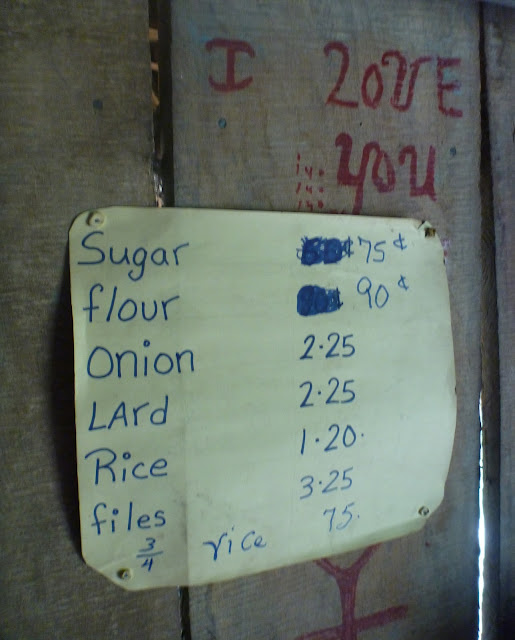 I LOVE
YOU
Sugar 75¢
flour 90¢
Onion 2·25
LArd 2·25
Rice 1·20·
files 3·25
3/4 rice 75.